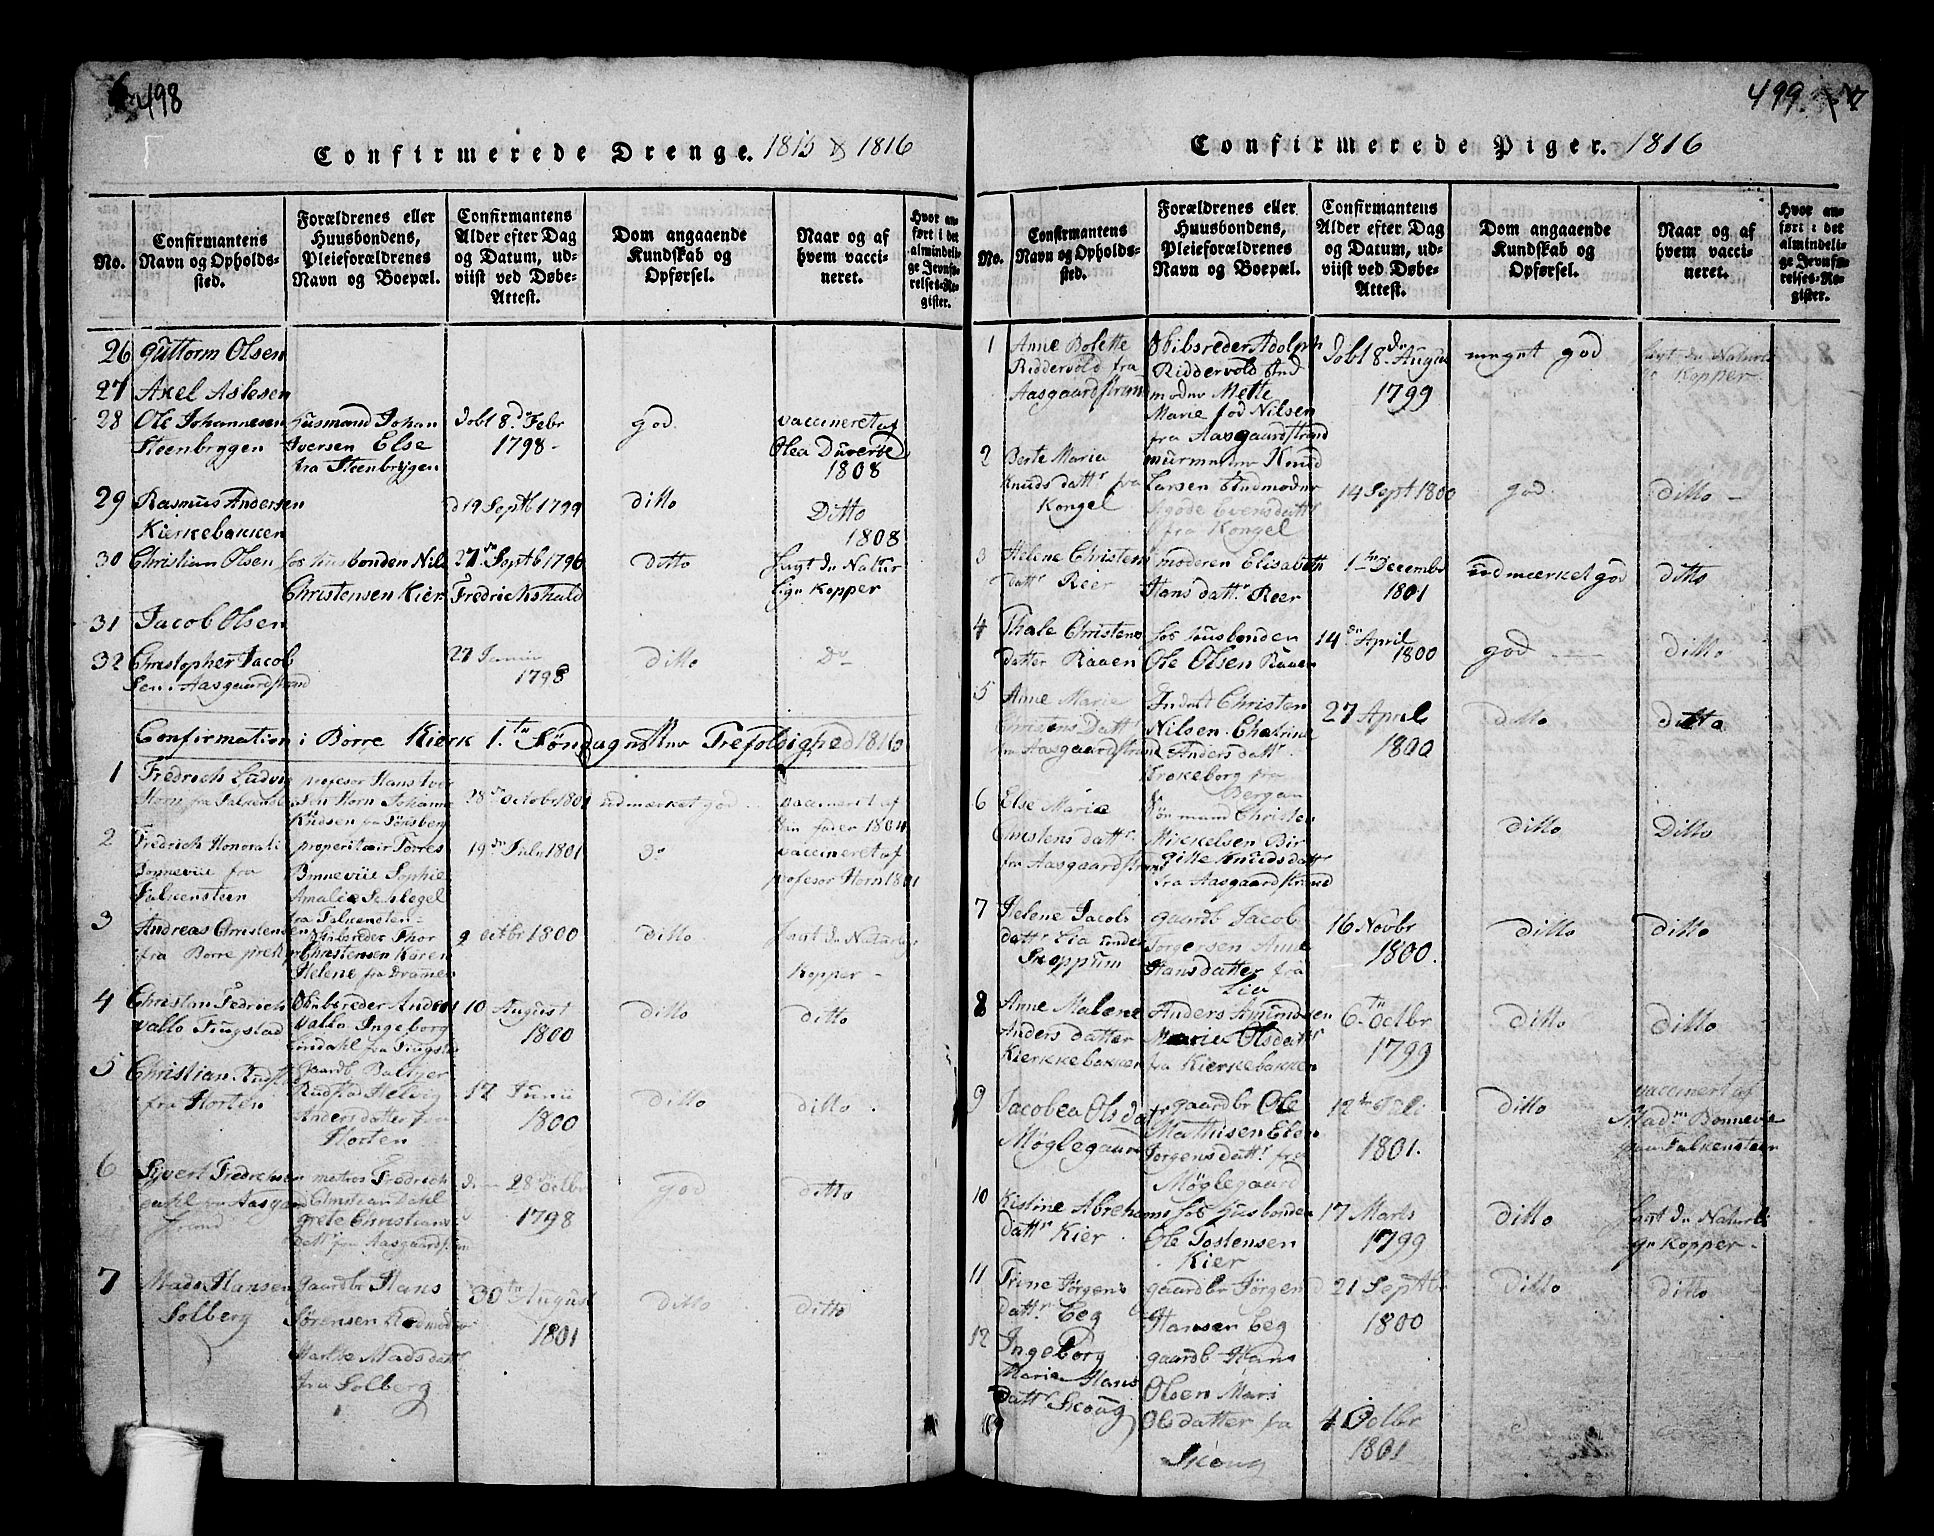 498
Confirmerede Drenge. 1815 & 1816
No.
Confirmantens
Navn og Opholds-
sted.
Forældrenes eller
Huusbondens,
Pleieforældrenes
Navn og Boepæl.
Confirmantens
Alder efter Dag
og Datum, ud-
viist ved Døbe-
Attest.
Dom angaaende
Kundskab og
Opførsel.
Naar og af
hvem vacci-
neret.
Hvor an-
ført i det
almindeli-
ge Jevnfø-
relses-Re-
gister.
26 Guttorm Olsen
27 Axel Aslesen
28 Ole Johannesen
Steenbryggen
Husmand Johan
Iversen Else
fra Steenbryggen
dobt 8. Febr
1798
god
vaccineret af
Olea Duverse
1808
29 Rasmus Andersen
Kierkebakken
d 19 Septb 1799
ditto
Ditto
1808
30 Christian Olsen
hos husbonden Nils
Christensen Kier
27 Septb 1796
Fredrickshald
ditto
hagt de Natur
lige Kopper
31 Jacob Olsen
32 Christopher Jacob
sen. Aasgaardstrand
27 Junii
1798
ditto
Do
Confirmation i Borre Kierk 1. Søndag efter Trefoldighed 1816
1 Fredrich Ludvig
Horn fra Falkens
profesor Hans Iver
sen Horn Johanne
Knudsen fra Tønsberg
28 octobr 1801
udmærket god
vaccineret af
Hans fader 1801
2 Fredrich Honorati
Bonnevie fra
Falkensteen
properitair Torres
Bonnevie Sophie
Amalia Schlegel
fra Falkensten
19 Julii 1801
Do
vaccineret af
profesor Horn 1801
3 Andreas Christensen
fra Borre prest
Skibsreder Thor
Christensen Karen
Helene fra Dramen
9 octbr 1800
ditto
hagt de Naturlige
Kopper
4 Christin Fredrich
Vallo Fiugstad
Skibsreder Anders
Vallo Ingeborg
Lindahl fra Fiugstad
10 August
1800
ditto
ditto
5 Christian Rudstad
fra Horten
gaardb Baltzer
Rudstad Helvig
Andersdatter fra
Horten
12 Junii
1800
ditto
ditto
6 Syvert Fredrichsen
fra Aasgaard
strand
matros Fredrich
Christian Dahl
grete Christians
datt fra Aasgaardstrand
28 Octbr
1798
god
ditto
7 Mads Hansen
Solberg
gaardbr Hans
Sörensen
Marthe Madsdatt
fra Solberg
30 August
1801
ditto
ditto
499
Confirmerede Piger. 1816
No.
Confirmantens
Navn og Opholds-
sted.
Forældrenes eller
Huusbondens,
Pleieforældrenes
Navn og Boepæl.
Confirmantens
Alder efter Dag
og Datum, ud-
viist ved Døbe-
Attest.
Dom angaaende
Kundskab og
Opførsel.
Naar og af
hvem vacci-
neret.
Hvor an-
ført i det
almindeli-
ge Jevnfø-
relses-Re-
gister.
1 Anne Bolette
Riddervold fra
Aasgaardstrand
Skibsreder Adolph
Riddervold Stud
moder Mette
Marie fod Nilsen
fra Aasgaardstrand
dobt 8. August
1799
meget god
hagt de Naturli
ge Kopper
2 Berte Maria
Knudsdattr fra
Kongel
murmester Knud
Larsen Studmoder
Evensdattr
fra Kongel
14 Sept 1800
god
ditto
3 Helene Christens
dattr Reer
moderen Elisabeth
Hansdattr Reer
1 Decembr
1801
udmærket god
ditto
4 Thale Christens
datter Raaen
hos husbonden
Ole Olsen Raaen
14 April
1800
god
ditto
5 Anne Marie
Christens Dattr
fra Aasgaardstrand
Christen
Nilsen. Chatrine
Andersdattr
Krokeborg fra
Bergan
27 April
1800
ditto
ditto
6 Else Marie
Christensdattr
fra Aasgaardstrand
Sömand Christen
Mickkelsen Bir
gitte Knudsdatt
fra Aasgaardstrand
ditto
Ditto
7 Helene Jacobs
dattr Lia under
Skoppum
gaardb Jacob
Jörgersen Anne
Hansdatter fra
Lia
16 Novbr
1800.
ditto
ditto
8 Anne Malene
Anders datter
Kierkkebakken
Anders Amundsen
Marie Olsdattr
fra Kierkebakken
6 Octbr
1799
ditto
ditto
9 Jacobea Olsdat
Møglegaard
gaardbr Ole
Mathisen Elen
Jörgensdattr fra
Møglegaard
12 Juli
1801.
ditto
vaccinert af
Madm Bonnevie
paa Falkensteen
10 Kistine Abreham
dattr Kier
hos Husbonden
Ole Tostensen
Kier
17 Marts
1799
ditto
hagt de Naturli
ge Kopper
11 Trine Jørgens
dattr Eeg
gaardbr Jörgen
Hansen Eeg
21 Septbr
1800
ditto
ditto
12 Ingeborg
Marie Hans
dattr Skoug
gaardb Hans
Olsen Mari
Olsdatter fra
Skoug
4 Octbr
1801